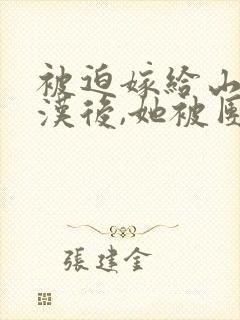 被迫嫁給山
漢後,她被團
張建金